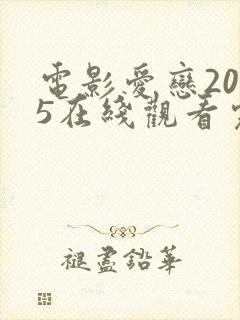 電影愛戀20
5在綫觀看
褪盡鉛華